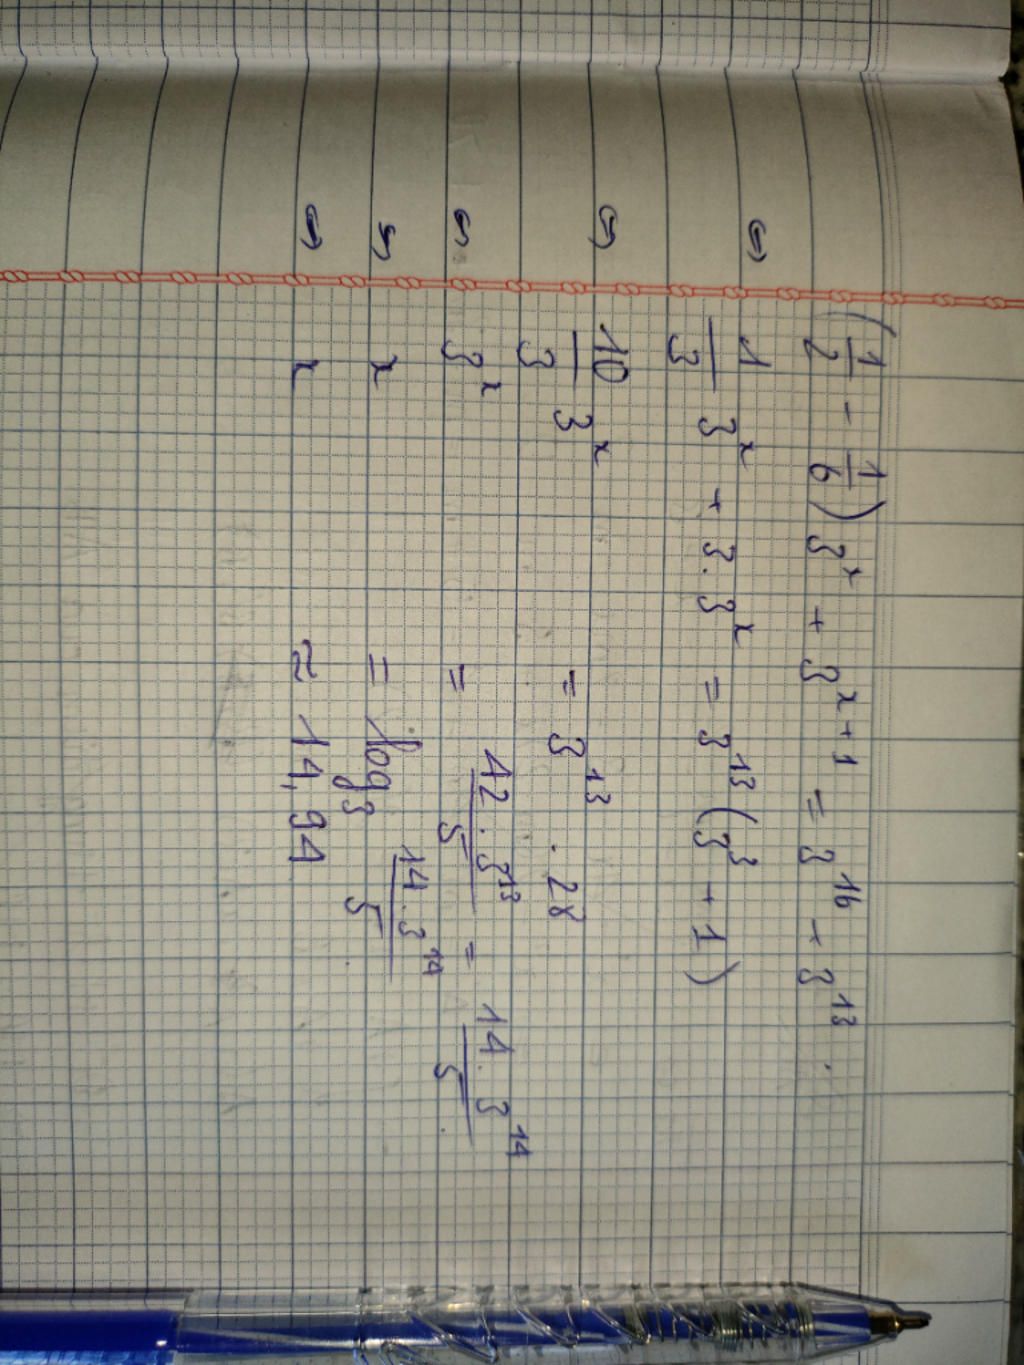 (1/2 - 1/6) 3^x + 3^(x+1) = 3^16 - 3^13.
⇔ 1/3 3^x + 3.3^x = 3^13 (3^3 + 1)
⇔ 10/3 3^x = 3^13 . 28
⇔ 3^x = 42 . 3^13 / 5 = 14 . 3^14 / 5 .
⇔ x = log_3 14 . 3^14 / 5 .
⇔ x ≈ 14,94